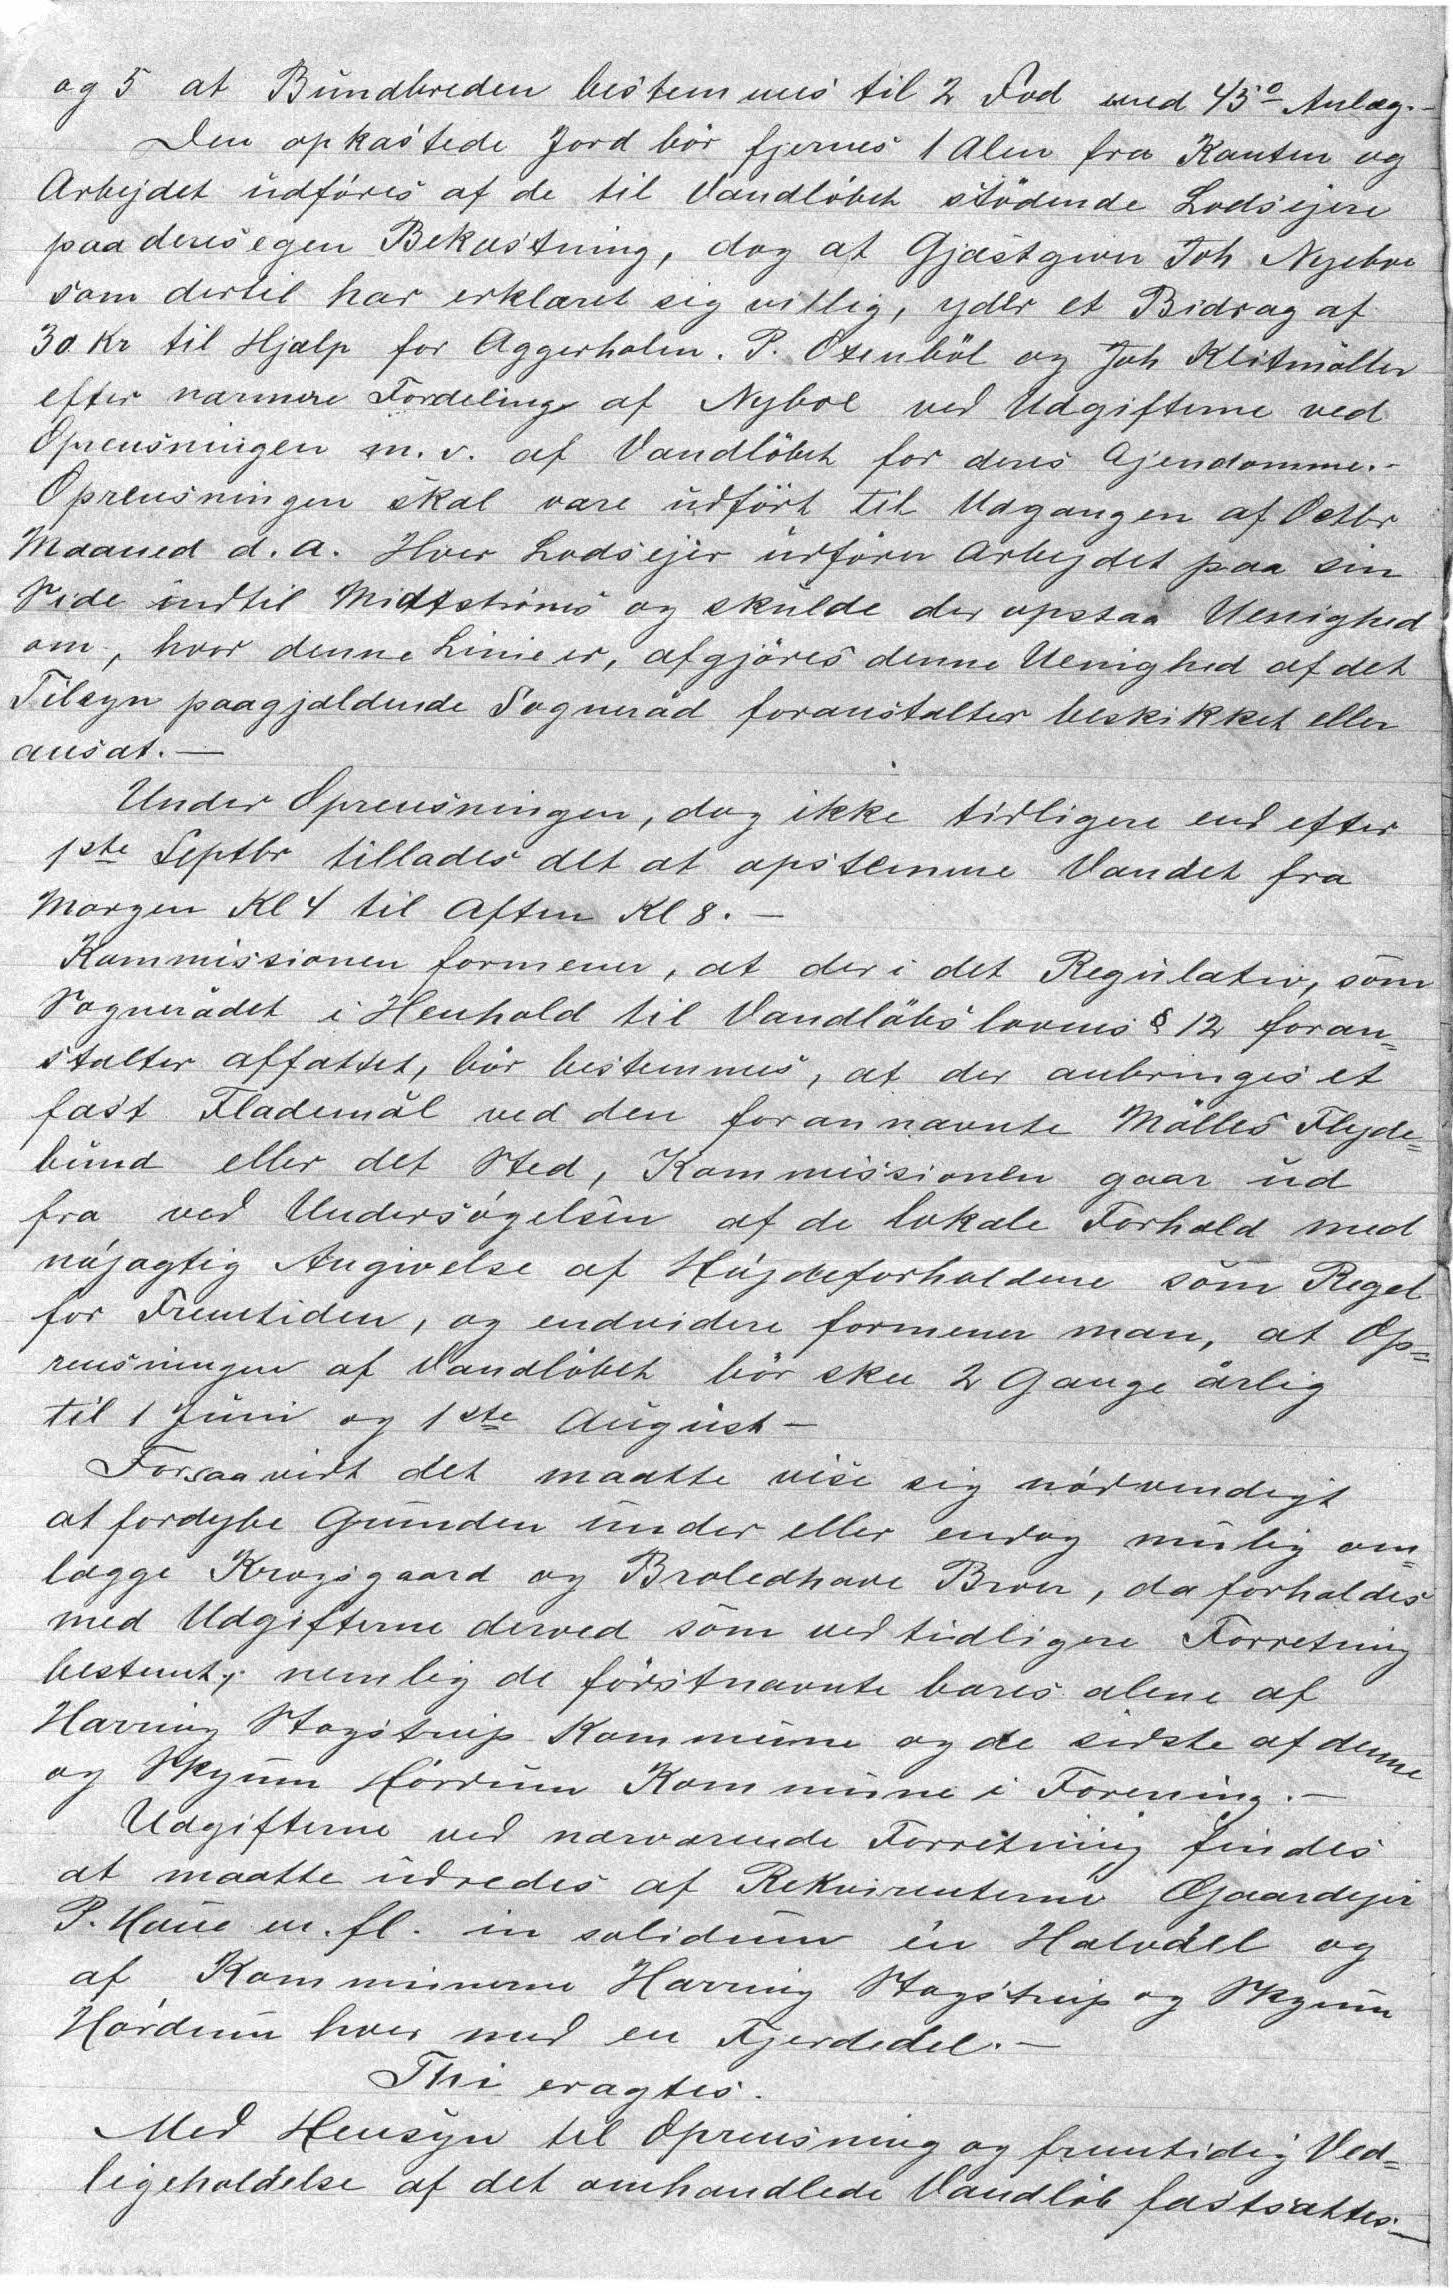 og 5 at Bundbreden bestemmes til 2 Fod med 45° Anlæg.-
Den opkastede Jord bör fjernes 1 Alen fra Kanten og
Arbejdet udföres af de til Vandlöbet stödende Lodsejere
paa deres egen Bekostning, dog at Gjæstgiver Joh Nyeboe
som dertil har erklæret sig villig, yder et Bidrag af
30 Kr til Hjælp for Aggerholm. P. Ozenböl og Joh Klitmöller
efter nærmere Fordeling af Nyboe ved Udgifterne ved
Oprensningen m.v. af Vandlöbet for deres Ejendomme.-
Oprensningen skal være udfört til Udgangen af Octbr
Maaned d.A. Hver Lodsejer udförer Arbejdet paa sin
Side indtil Midtströms og skulde der opstaa Uenighed
om, hvor denne Linie er, afgjöres denne Uenighed af det
Tilsyn paagjældende Sogneråd foranstalter beskikket eller
ansat.—
Under Oprensningen, dog ikke tidligere end efter
1ste Septbr tillades det at opstemme Vandet fra
Morgen Kl 4 til Aften Kl 8.—
Kommissionen formener, at der i det Regulativ, som
Sognerådet i Henhold til Vandlöbslovens § 12 foran=
stalter affattet, bör bestemmes, at der anbringes et
fast Flademål ved den forannævnte Mölles Flyde=
bund eller det Sted, Kommissionen gaar ud
fra ved Undersögelsen af de lokale Forhold med
nöjagtig Angivelse af Höjdeforholdene som Regel
for Fremtiden, og endvidere formener man, at Op=
rensningen af Vandlöbet bör ske 2 Gange årlig
til 1 Juni og 1ste August—
Forsaavidt det maatte vise sig nödvendigt
at fordybe Grunden under eller endog mulig om=
lægge Krogsgaard og Broledhave Broer, da forholdes
med Udgifterne derved som ved tidligere Forretning
bestemt, nemlig de förstnævnte bæres alene af
Harring Stagstrup Kommune og de sidste af denne
og Skyum Hördum Kommune i Forening.—
Udgifterne ved nærværende Forretning findes
at maatte udredes af Rekvirenterne Gaardejer
P. Haue m.fl. in solidum en Halvdel og
af Kommunerne Harring Stagstrup og Skyum
Hördum hver med en Fjerdedel.—
Thi eragtes.
Med Hensyn til Oprensning og fremtidig Ved=
ligeholdelse af det omhandlede Vandlöb fastsættes—